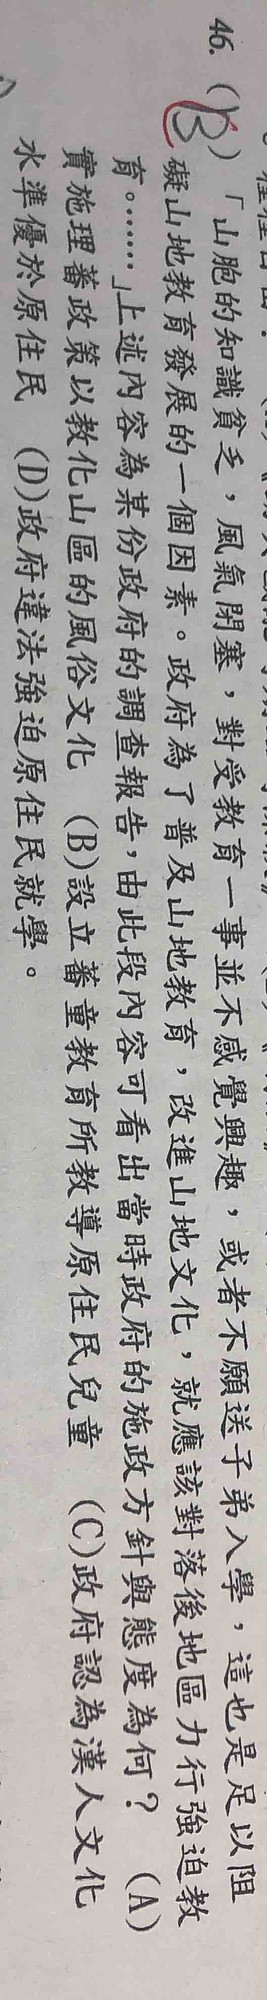 46. (B) 「山胞的知識貧乏，風氣閉塞，對受教育一事並不感覺興趣，或者不願送子弟入學，這也是足以阻
礙山地教育發展的一個因素。政府為了普及山地教育，改進山地文化，就應該對落後地區力行強迫教
育。……」上述內容為某份政府的調查報告，由此段內容可看出當時政府的施政方針與態度為何？ (A)
實施理蕃政策以教化山區的風俗文化 (B)設立蕃童教育所教導原住民兒童 (C)政府認為漢人文化
水準優於原住民 (D)政府違法強迫原住民就學。